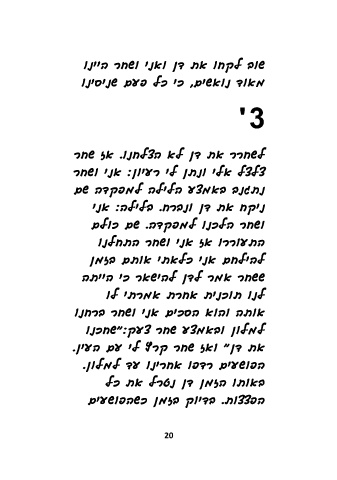 שוב לקחו את דן ואני ושחר היינו
מאוד נואשים, כי כל פעם שניסינו
3'
לשחרר את דן לא הצלחנו. אז שחר
צלצל אלי ונתן לי רעיון: אני ושחר
נתגנב באמצע הלילה למפקדה שם
ניקח את דן ונברח. בלילה: אני
ושחר הלכנו למפקדה. שם כולם
התעוררו אז אני ושחר התחלנו
להילחם אני כלאתי אותם בזמן
ששחר אמר לדן להישאר כי הייתה
לנו תוכנית אחרת אמרתי לו
אותה והוא הסכים אני ושחר ברחנו
למלון ובאמצע שחר צעק:"שחכנו
את דן" ואז שחר קרץ לי עם העין.
הפושעים רדפו אחרינו עד למלון.
באותו הזמן דן נטרל את כל
הפצצות. בדיוק בזמן כשהפושעים
20